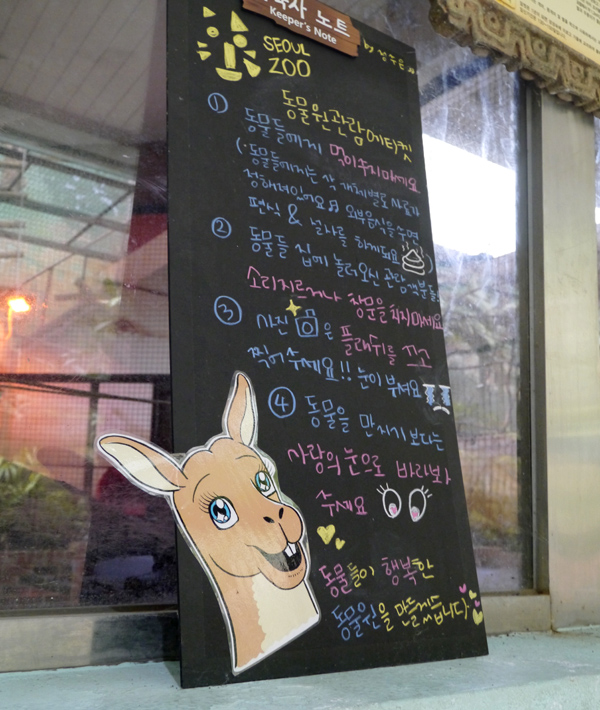 사 노트
Keeper's Note
SEOUL
ZOO
동물원관람에티켓
① 동물들에게 먹이주지마세요
(·동물들에게는 각 개체별로 사료가
정해져있어요♬ 외부음식을 주면
편식 & 설사를 하게되요
② 동물들 집에 놀러오신 관람객분들
소리지르거나 창문을 치지마세요
③ 사진 은 플래쉬를 끄고
찍어주세요!! 눈이 부셔요
④ 동물을 만지기 보다는
사랑의 눈으로 바라봐
주세요
동물들이 행복한
동물원을 만들게씁니다